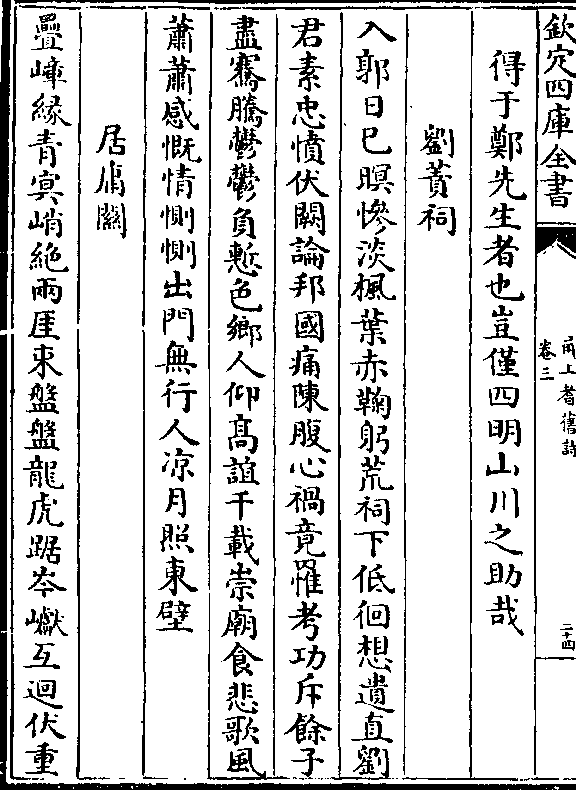 欽定四庫全書
甬上耆舊詩
卷三
二十四
得于鄭先生者也豈僅四明山川之助哉
劉蕡祠
入郭日已暝慘淡楓葉赤鞠躬荒祠下低徊想遺直劉
君素忠憤伏闕論邦國痛陳腹心禍竟罹考功斥餘子
盡騫騰鬱鬱負慙色鄉人仰高誼千載崇廟食悲歌風
蕭蕭感慨情惻惻出門無行人凉月照東壁
居庸關
疊嶂緣青冥峭絶兩厓束盤盤龍虎踞岑巘互迴伏重